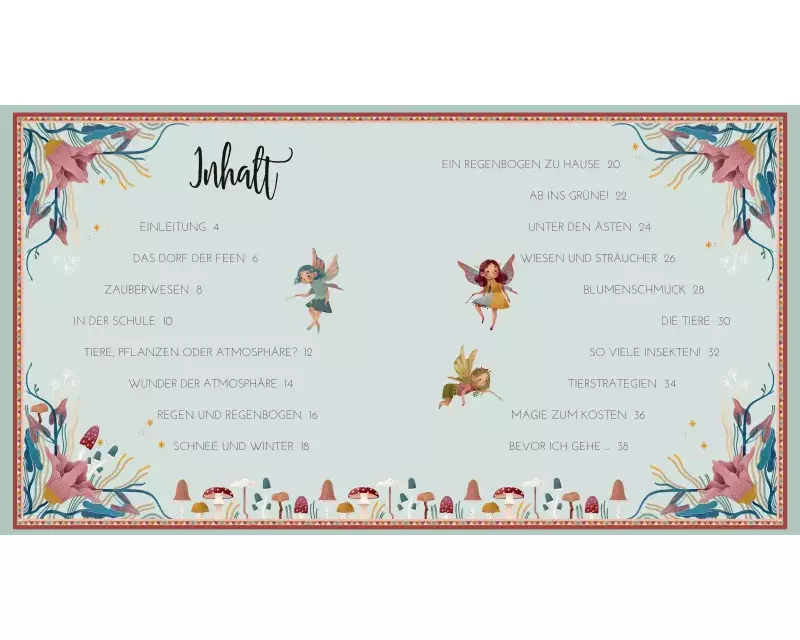 Inhalt
EINLEITUNG 4
DAS DORF DER FEEN 6
ZAUBERWESEN 8
IN DER SCHULE 10
TIERE, PFLANZEN ODER ATMOSPHÄRE? 12
WUNDER DER ATMOSPHÄRE 14
REGEN UND REGENBOGEN 16
SCHNEE UND WINTER 18
EIN REGENBOGEN ZU HAUSE 20
AB INS GRÜNE! 22
UNTER DEN ÄSTEN 24
WIESEN UND STRÄUCHER 26
BLUMENSCHMUCK 28
DIE TIERE 30
SO VIELE INSEKTEN! 32
TIERSTRATEGIEN 34
MAGIE ZUM KOSTEN 36
BEVOR ICH GEHE ... 38